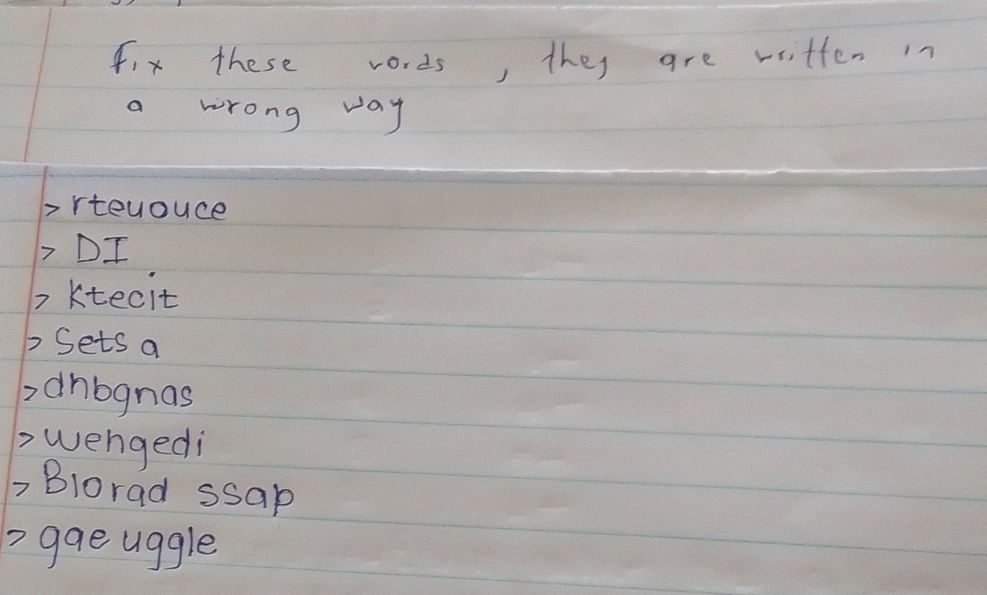 fix these words, they are written in
a wrong way
> rteuouce
> DI
> Ktecit
> Sets a
> dhbgnas
> wehgedi
> Blorad ssap
> gae uggle